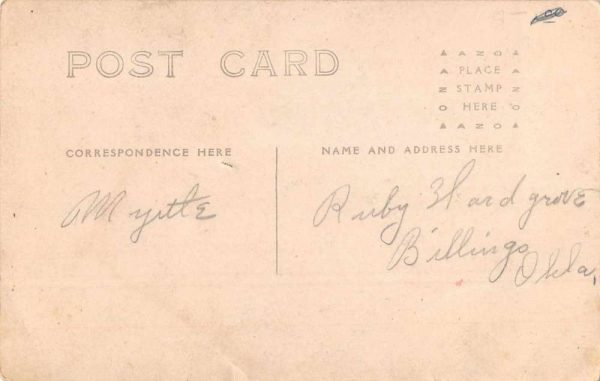 POST CARD
▲ A Z O ▲
▲ PLACE ▲
N STAMP N
O HERE O
▲ A Z O ▲
CORRESPONDENCE HERE
NAME AND ADDRESS HERE
Myrtle
Ruby Hardgrove
Billings
Okla,